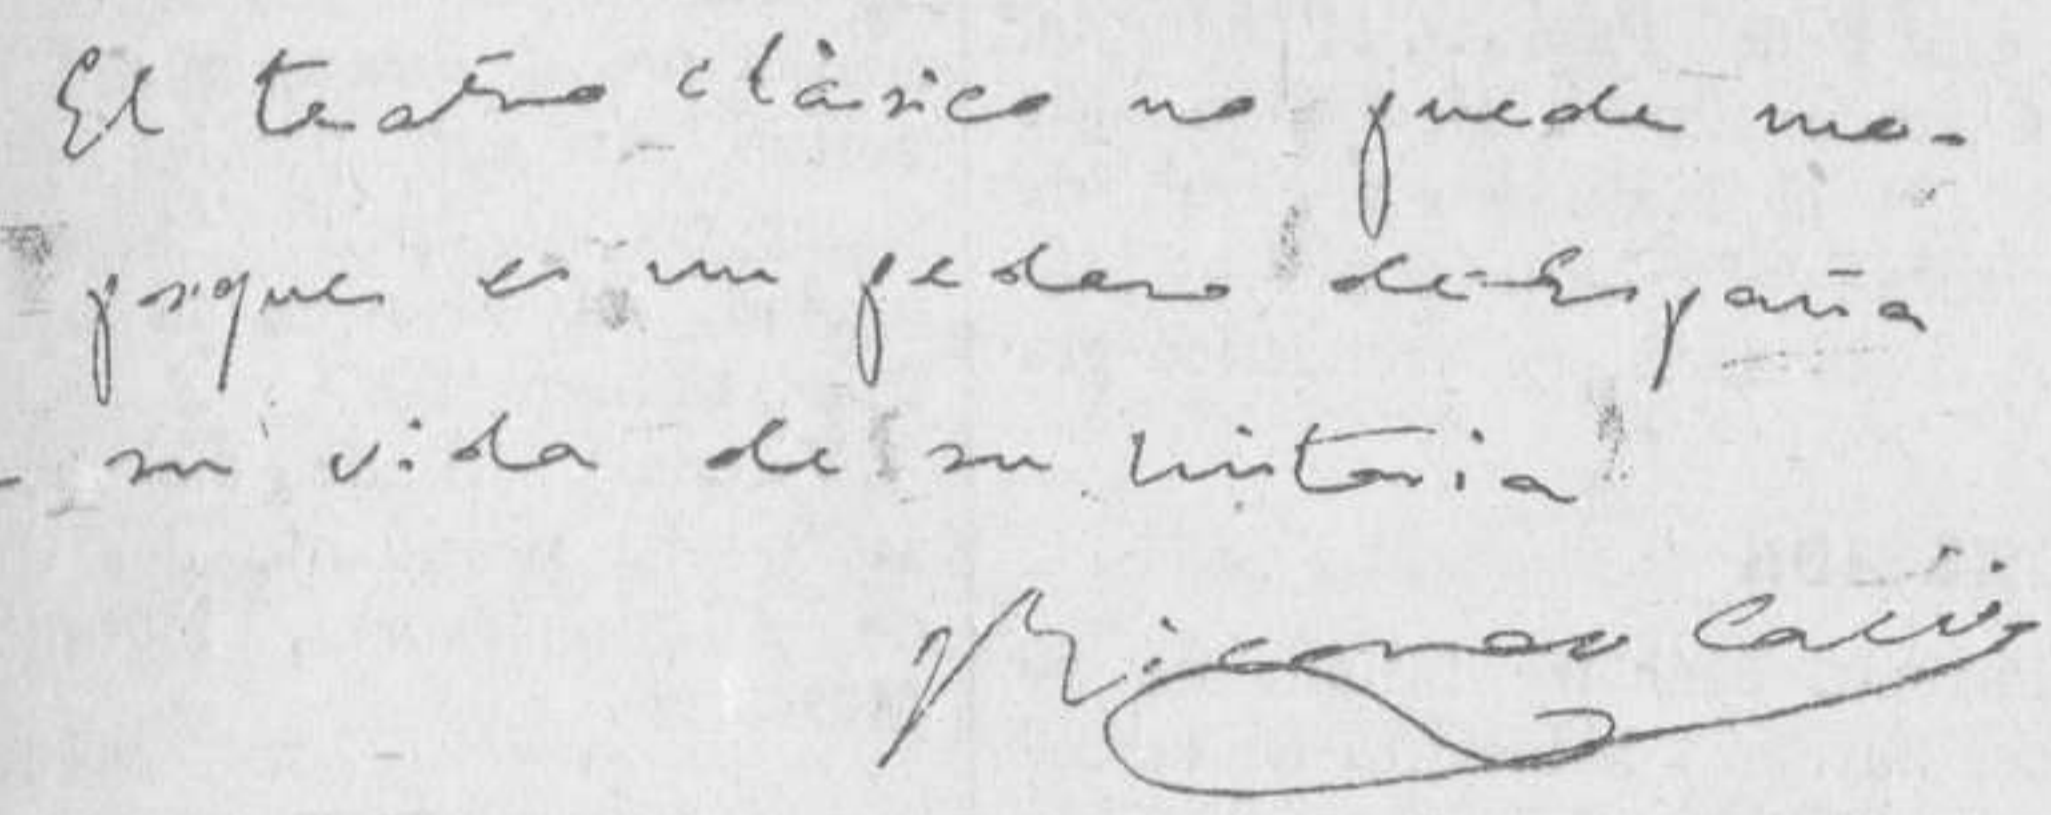 El teatro clásico no puede mo-
porque es un pedazo de España
su vida de su historia
Ricardo Calvo